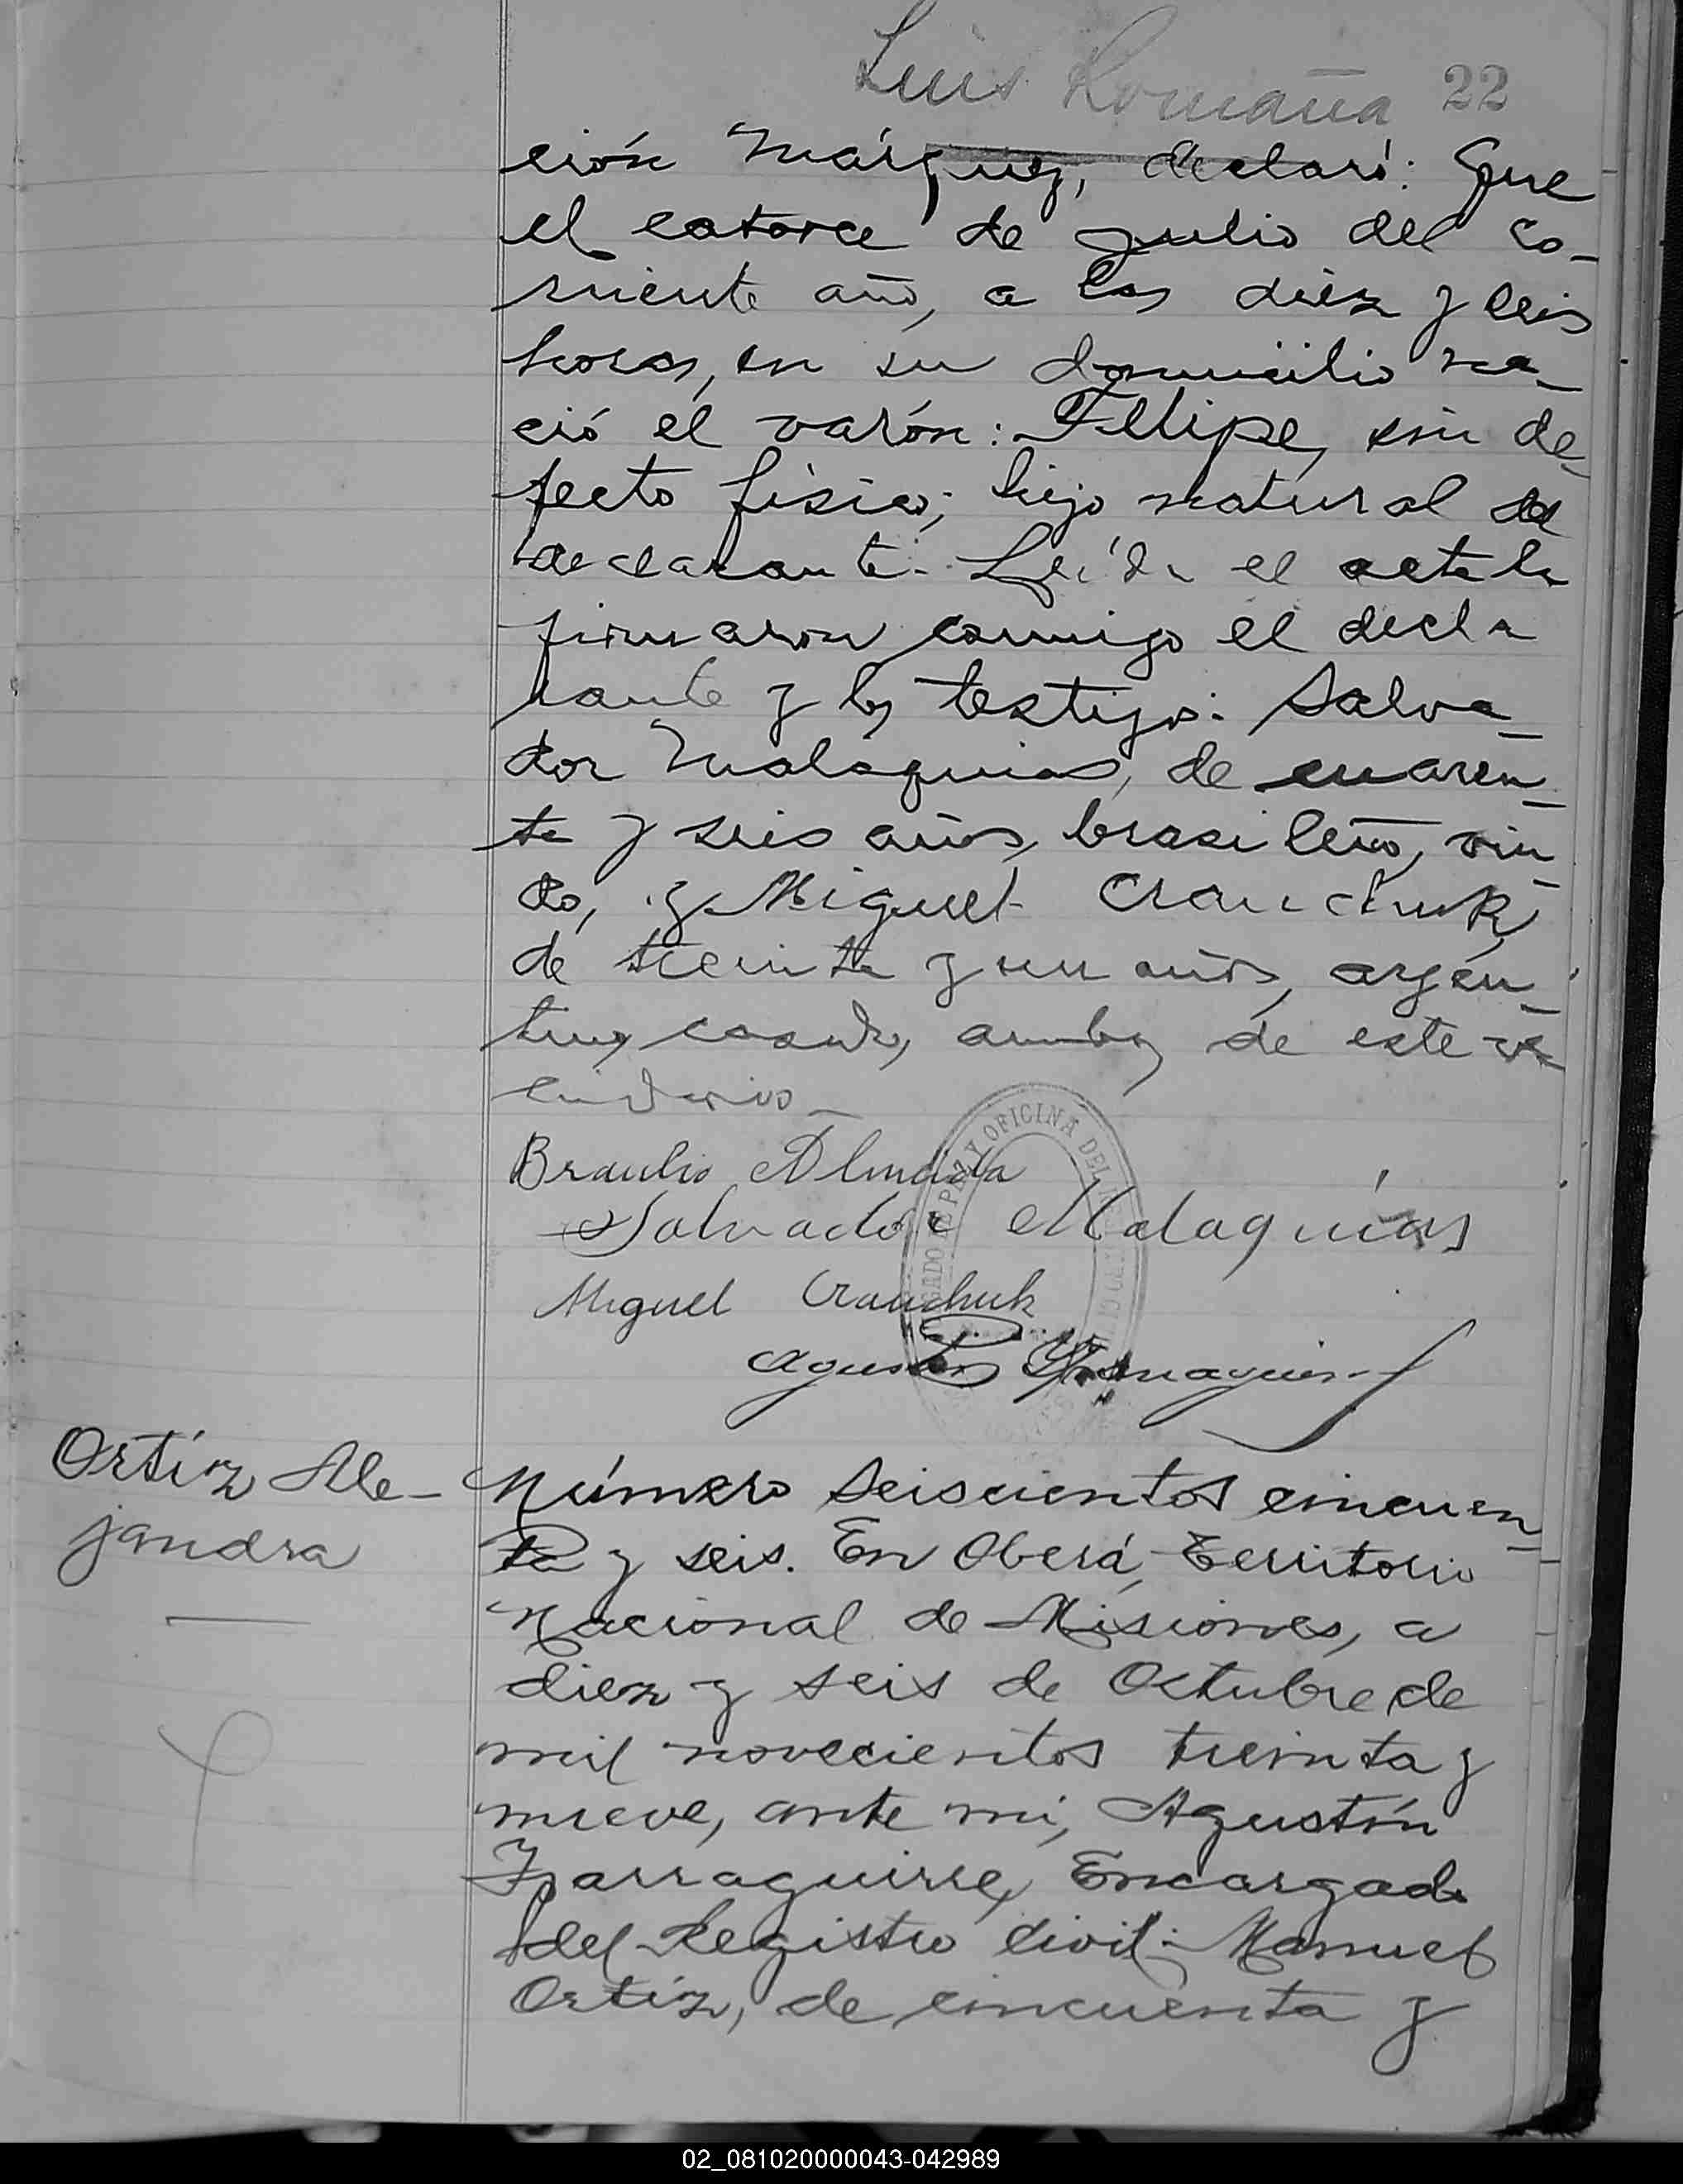 Luis Romaña 22
ción Márquez, declaró: Que
el catorce de julio del co-
rriente año, a las diez y seis
horas, en su domicilio na-
ció el varón: Felipe, sin de-
fecto físico; hijo natural del
declarante. Leída el acta la
firmaron conmigo el decla
rante y los testigos: Salva-
dor Malaquias, de cuaren-
ta y seis años, brasileño, viu-
do, y Miguel Crauchuk,
de treinta y un años, argen-
tino, casado, ambos de este ve
cindario.
Braulio Almada
Salvador Malaquías
Miguel Crauchuk
Agustín Yparraguirre
OFICINA DEL
Ortíz Ale-
jandra
Número Seiscientos cincuen-
ta y seis. En Oberá, Territorio
Nacional de Misiones, a
diez y seis de Octubre de
mil novecientos treinta y
nueve, ante mi, Agustín
Yparraguirre, Encargado
del Registro Civil: Manuel
Ortíz, de cincuenta y
02_081020000043-042989